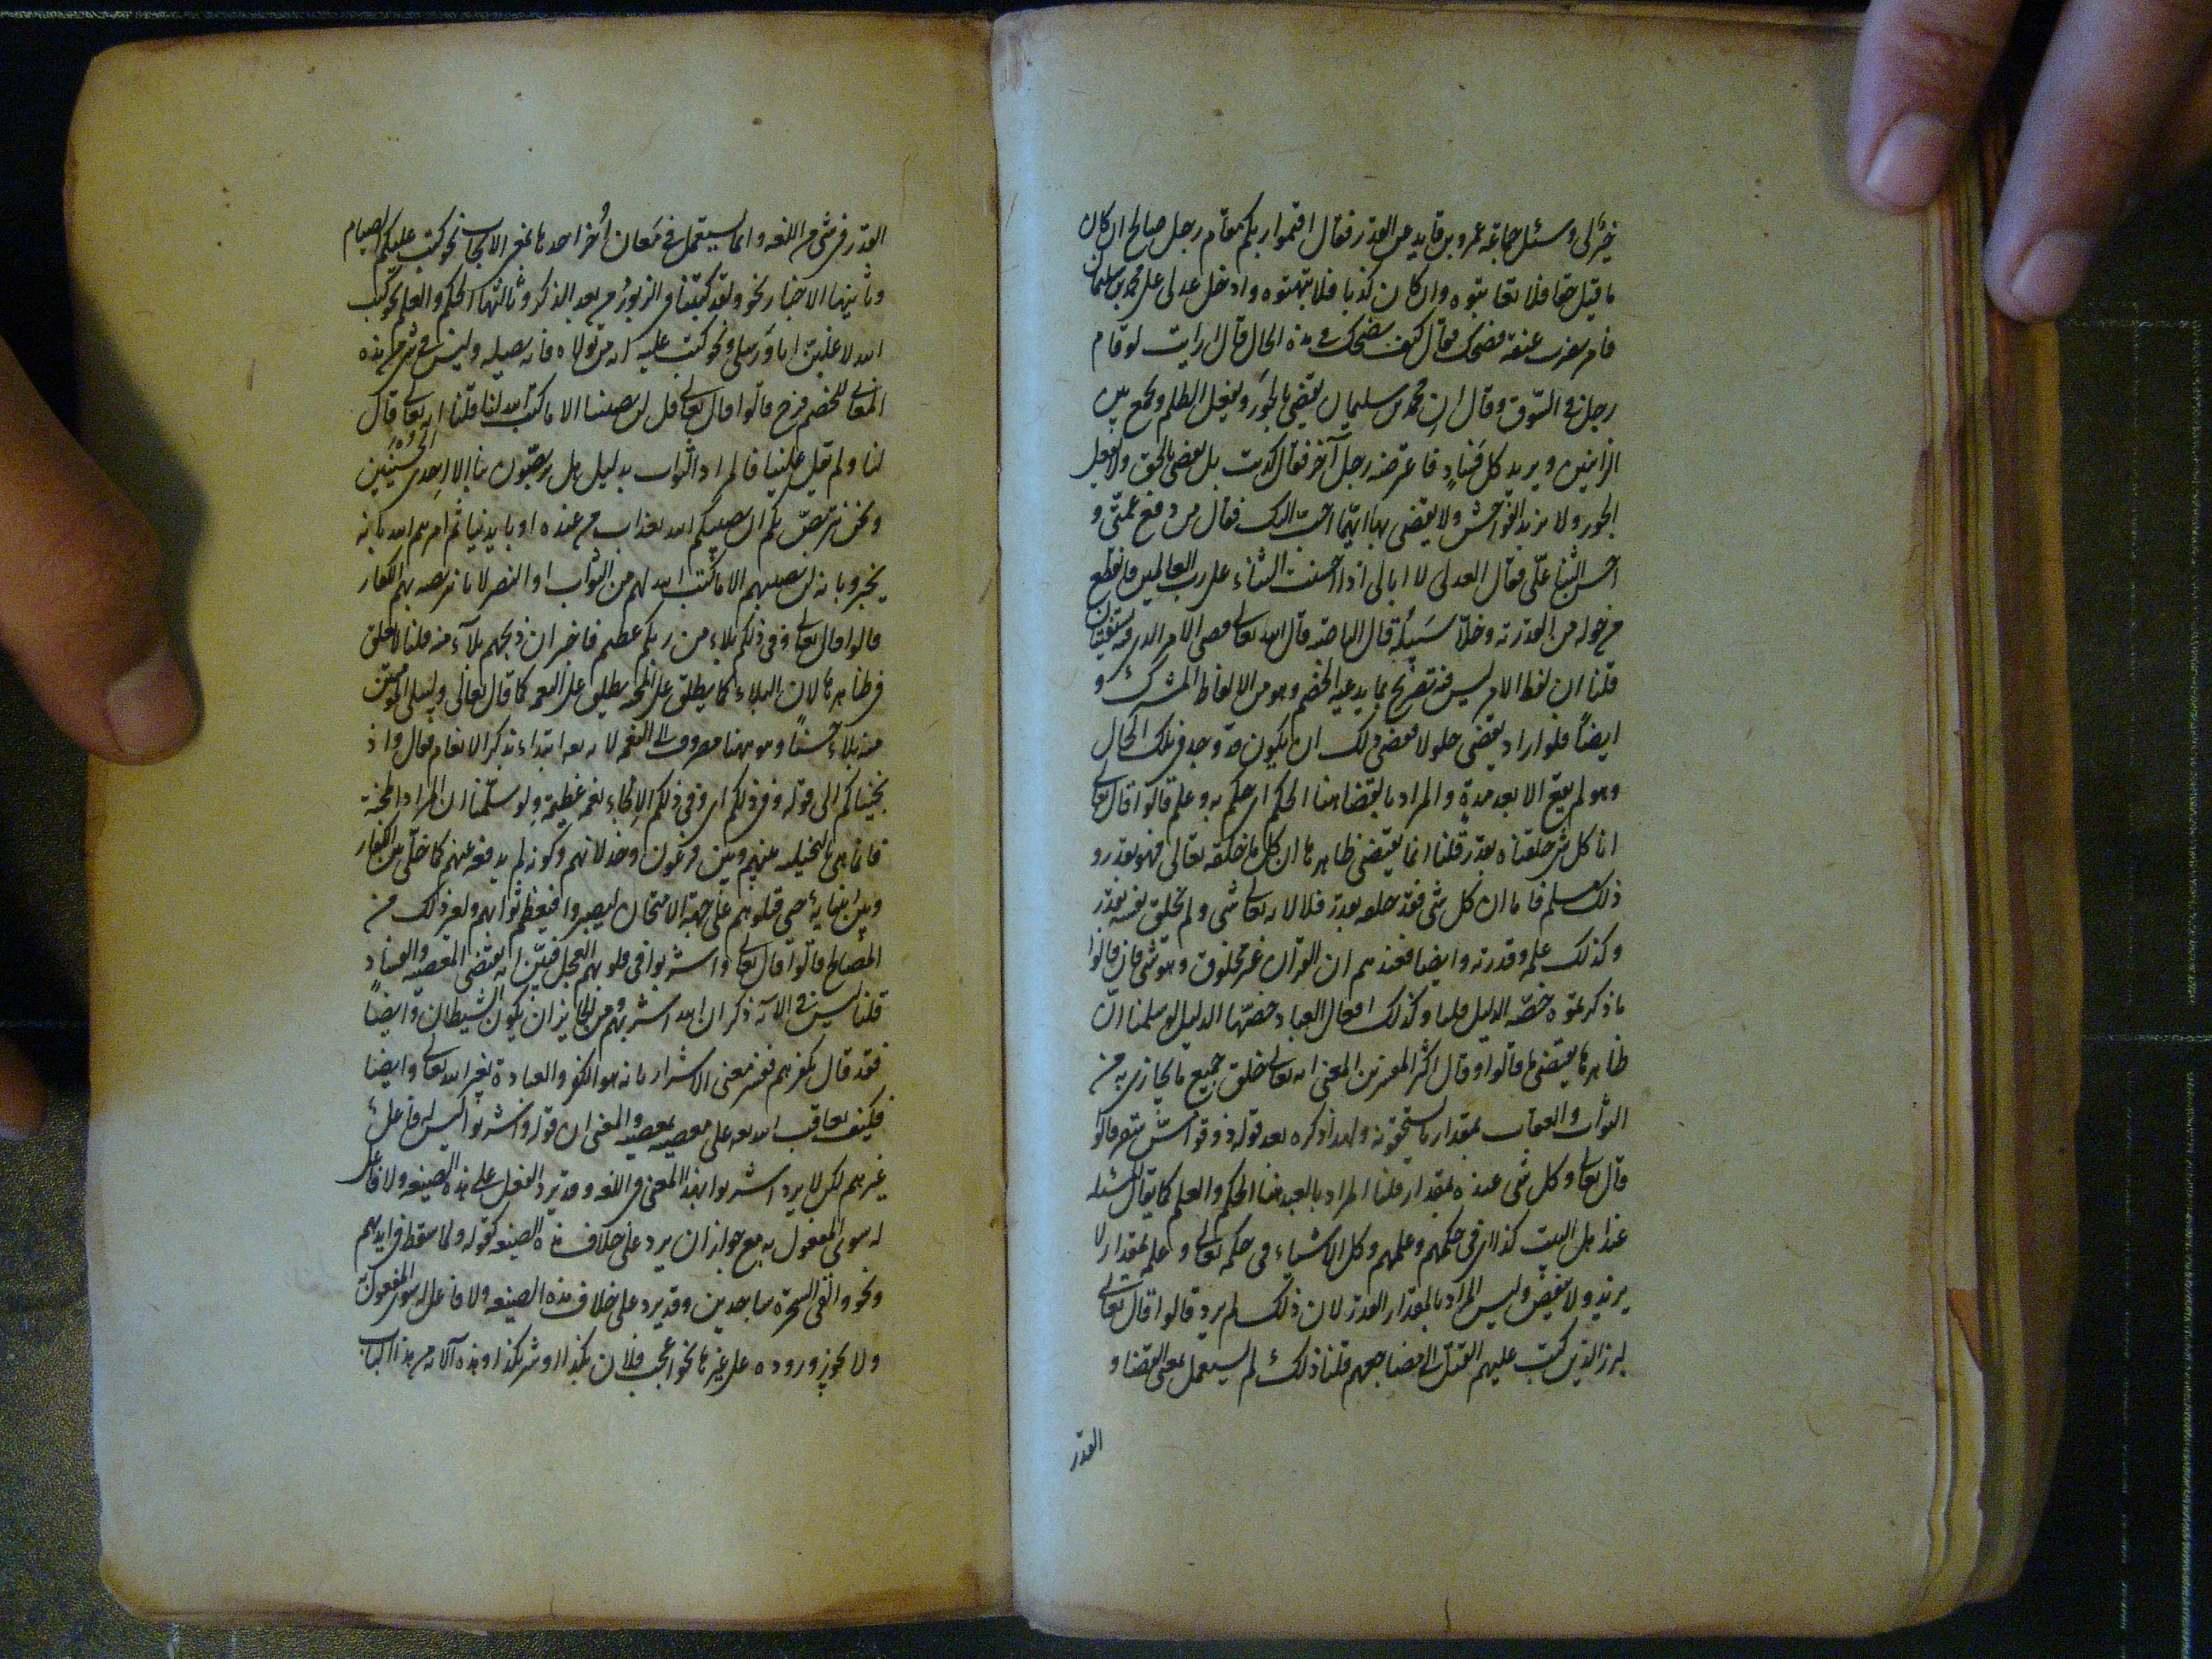 خير لى وسئل جماعة عمرو بن قايد عن القدر فقال اقيموا ربكم مقام رجل صالح ان كان
ما قيل حقا فلا تعا تبوه وان كان كذبا فلا تبهتوه وادخل عدلى على محمد بن سليمان
فامر بضرب عنقه فضحك فقال كيف تضحك فى هذه الحال قال ارايت لو قام
رجل فى السوق وقال ان محمد بن سليمان يقضى بالجور ويفعل الظلم ويجمع بين
الزانيين ويريد كل فساد فاعترضه رجل آخر فقال كذبت بل يقضى بالحق ولا يفعل
الجور ولا يريد الفواحش ولا يقضى بها ايهما احب اليك فقال من دفع عنى و
احسن الثنا على فقال العدلى لا ابالى اذا احسنت الثناء على رب العالمين فانقطع
من حوله من القدرية وخلا سبيله قال الله تعالى قضى الامر الذى فيه تستفتيان
قلنا ان لفظ الامر ليس فيه تصريح بما يدعيه الخصم وهو من الالفاظ المشتركة و
ايضا فلو اراد يقضى ذلك ان يكون قد وجد فى تلك الحال
وهو لم يقع الا بعد مدة والمراد بالقضا هنا الحكم اى حكم به وعلم قالوا قال تعالى
انا كل شئ خلقناه بقدر قلنا انما يقتضى ظاهرها ان كل ما خلقه تعالى فهو بقدر و
ذلك مسلم فاما ان كل شئ فقد خلقه بقدر فلا لانه تعالى شئ ولم يخلق نفسه بقدر
وكذلك علمه وقدرته وايضا فعندهم ان القرآن غير مخلوق وهو شئ فان قالوا
ما ذكرتموه خصه الدليل قلنا وكذلك افعال العباد خصتها الدليل ولو سلمنا ان
ظاهرها يقتضى ما قالوا وقال اكثر المفسرين المعنى انه تعالى خلق جميع ما يجازى به من
الثواب والعقاب بمقدار ما يستحقونه ولهذا ذكره بعد قوله ذوقوا مس سقر قالوا
قال تعالى وكل شئ عنده بمقدار قلنا المراد بالعند هنا الحكم والعلم كما يقال المسئلة
عند اهل البيت كذا اى فى حكمهم وعلمهم وكل الاشياء فى حكمه تعالى وعلمه بمقدار لا
يزيد ولا ينقص وليس المراد بالمقدار القدر لان ذلك لم يرد قالوا قال تعالى
لبرز الذين كتب عليهم القتل الى مضاجعهم قلنا ذلك لم يستعمل بمعنى القضا و
القدر
القدر فى شئ من اللغة وانما يستعمل فى معان اخر احدها بمعنى الايجاب نحو كتب عليكم الصيام
وثانيها الاخبار نحو ولقد كتبنا فى الزبور من بعد الذكر وثالثها الحكم والعلم نحو كتب
الله لاغلبن انا ورسلى ونحو كتب عليه انه من تولاه فانه يضله وليس فى شئ من هذه
المعانى للخصم فرح قالوا قال تعالى قل لن يصيبنا الا ما كتب الله لنا قلنا انه تعالى قال
لنا ولم يقل علينا فالمراد الثواب بدليل هل تربصون بنا الا احدى الحسنيين
ونحن نتربص بكم ان يصيبكم الله بعذاب من عنده او بايدينا ثم امرهم الله بانه
يخبروا بانه لن يصيبهم الا ما كتب الله لهم من الثواب او النصر لا ما تربصه بهم الكفار
قالوا قال تعالى وفى ذلكم بلاء من ربكم عظيم فاخبر ان ذبحهم بلاء منه قلنا لا تعلق
فى ظاهرها لان البلاء كما يطلق على المحنة يطلق على النعمة كما قال تعالى وليبلى المؤمنين
منه بلاء حسنا وهو ههنا مصروف الى النعمة لانه تعالى ابتداء بذكر الانعام فقال واذ
نجيناكم الى قوله وفى ذلكم اى وفى ذلكم الانجاء نعمة عظيمة ولو سلمنا ان المراد المحنة
فانما هى بالتخلية بينهم وبين فرعون وخذلانهم وكونه لم يدفعه عنهم كما خلى بين الكفار
وبين انبيائه حتى قتلوهم على جهة الامتحان ليصبروا فيعظم ثوابهم ولغير ذلك من
المصالح قالوا قال تعالى واشربوا فى قلوبهم العجل فبين انه يقتضى المعصية والفساد
قلنا ليس فى الآية ذكر ان الله اشربهم ومن الجايز ان يكون الشيطان وايضا
فقد قال بكفرهم ففسر معنى الاشراب بانه هو الكفر والعبادة لغير الله تعالى وايضا
فكيف يعاقب الله تعالى على معصية بمعصية والمعنى ان قوله واشربوا ليس له فاعل
غيرهم لكن لا يرد اشربوا بهذا المعنى فى اللغة وقد يرد الفعل على هذه الصيغة ولا فاعل
له سوى المفعول به مع جواز ان يرد على خلاف هذه الصيغة كقوله ولما سقط فى ايديهم
ونحو والقى السحرة ساجدين وقد يرد على خلاف هذه الصيغة ولا فاعل له سوى المفعول
ولا يجوز وروده على غيرها نحو اعجب فلان بكذا او شر بكذا وهذه الآية من هذا الباب